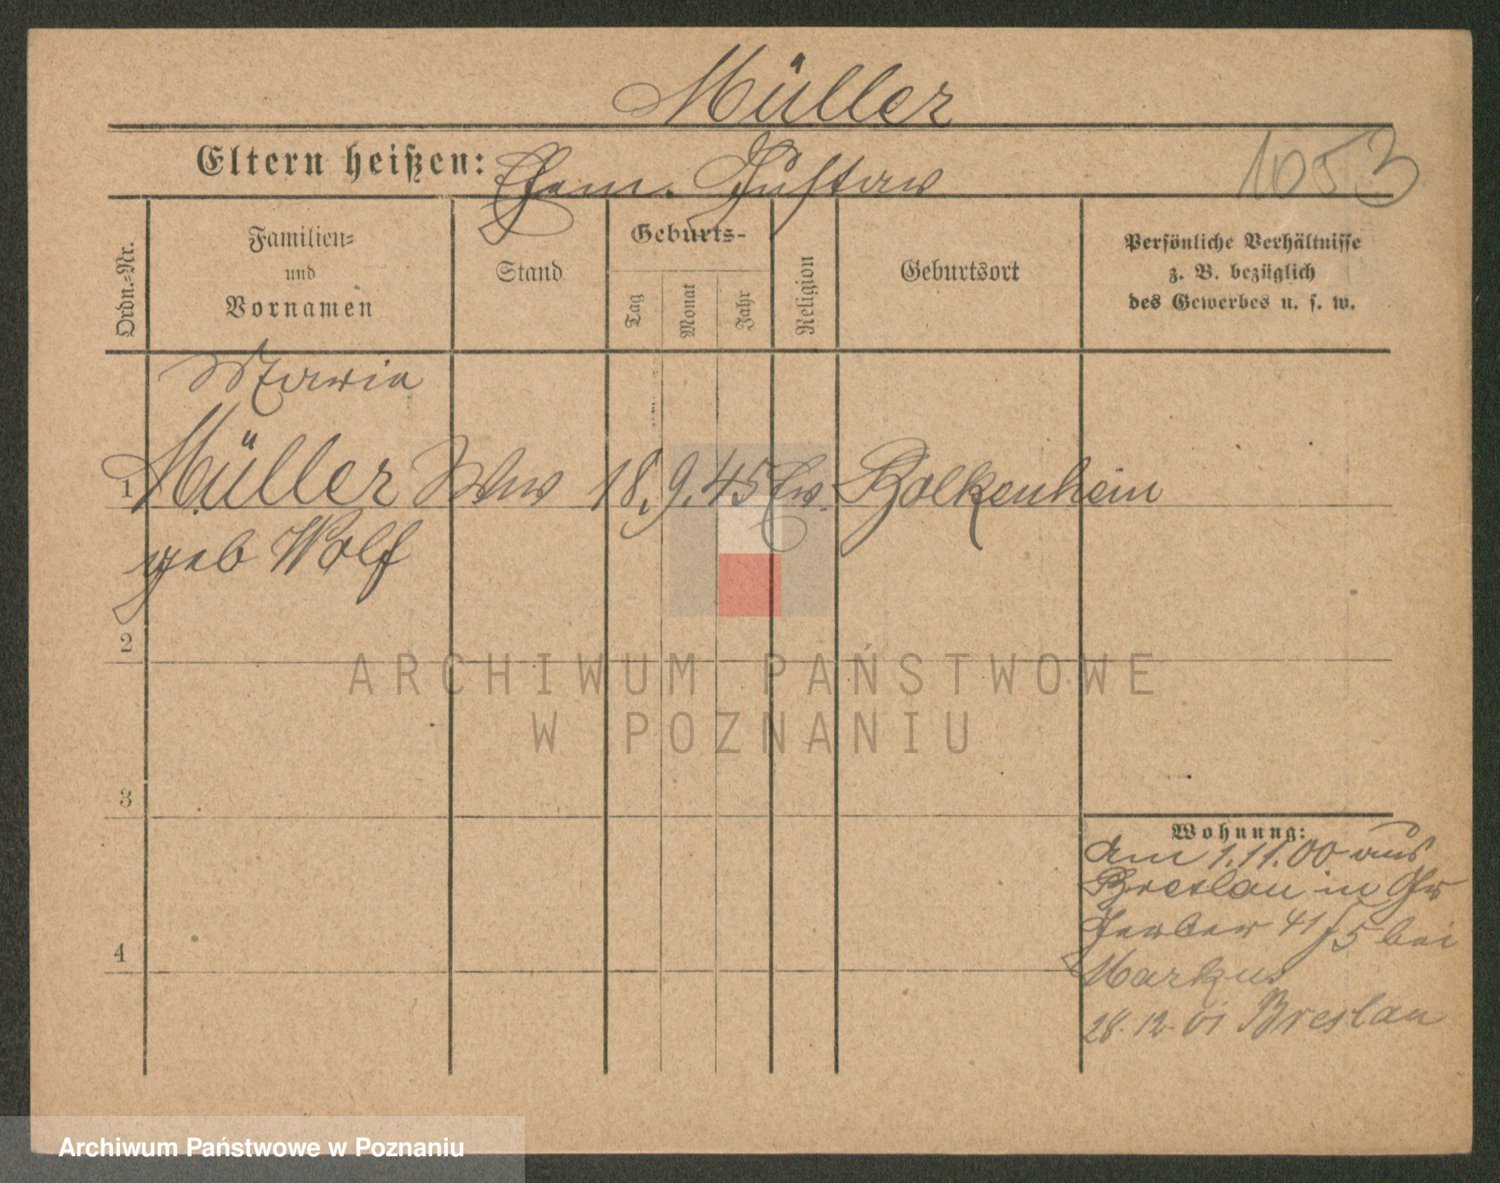 Müller
Eltern heißen: Ehem. Gustav
1053
Ordn.-Nr.
Familien-
und
Vornamen
Stand
Geburts-
Tag
Monat
Jahr
Religion
Geburtsort
Persönliche Verhältnisse
z. B. bezüglich
des Gewerbes u. s. w.
Maria
1 Müller Ww 18. 9. 45 Ev. Bolkenhein
geb Wolf
2
ARCHIWUM PAŃSTWOWE
W POZNANIU
3
4
Wohnung:
Am 1.11.00 aus
Breslau in
Gerber 41 bei
Markus
28.12.01 Breslau
Archiwum Państwowe w Poznaniu